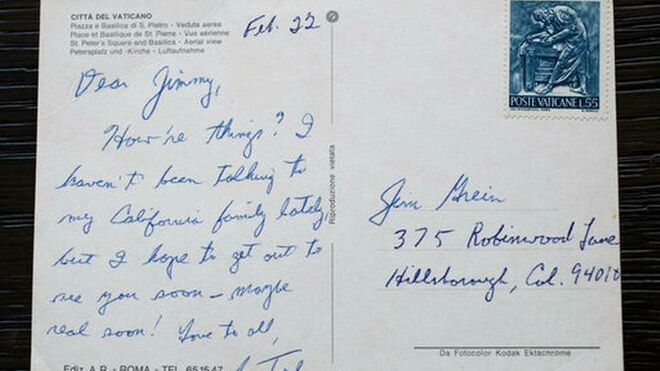 CITTÀ DEL VATICANO
Piazza e Basilica di S. Pietro - Veduta aerea
Place et Basilique de St. Pierre - Vue aérienne
St. Peter's Square and Basilica - Aerial view
Petersplatz und -Kirche - Luftaufnahme
Feb. 22
Dear Jimmy,
How're things? I
haven't been talking to
my California family lately,
but I hope to get out to
see you soon - maybe
real soon! Love to all,
Ediz. A.R. - ROMA - TEL. 651547
Riproduzione vietata
POSTE VATICANE L.55
Jim Grein
375 Robinwood Lane
Hillsborough, Cal. 94010
Da Fotocolor Kodak Ektachrome